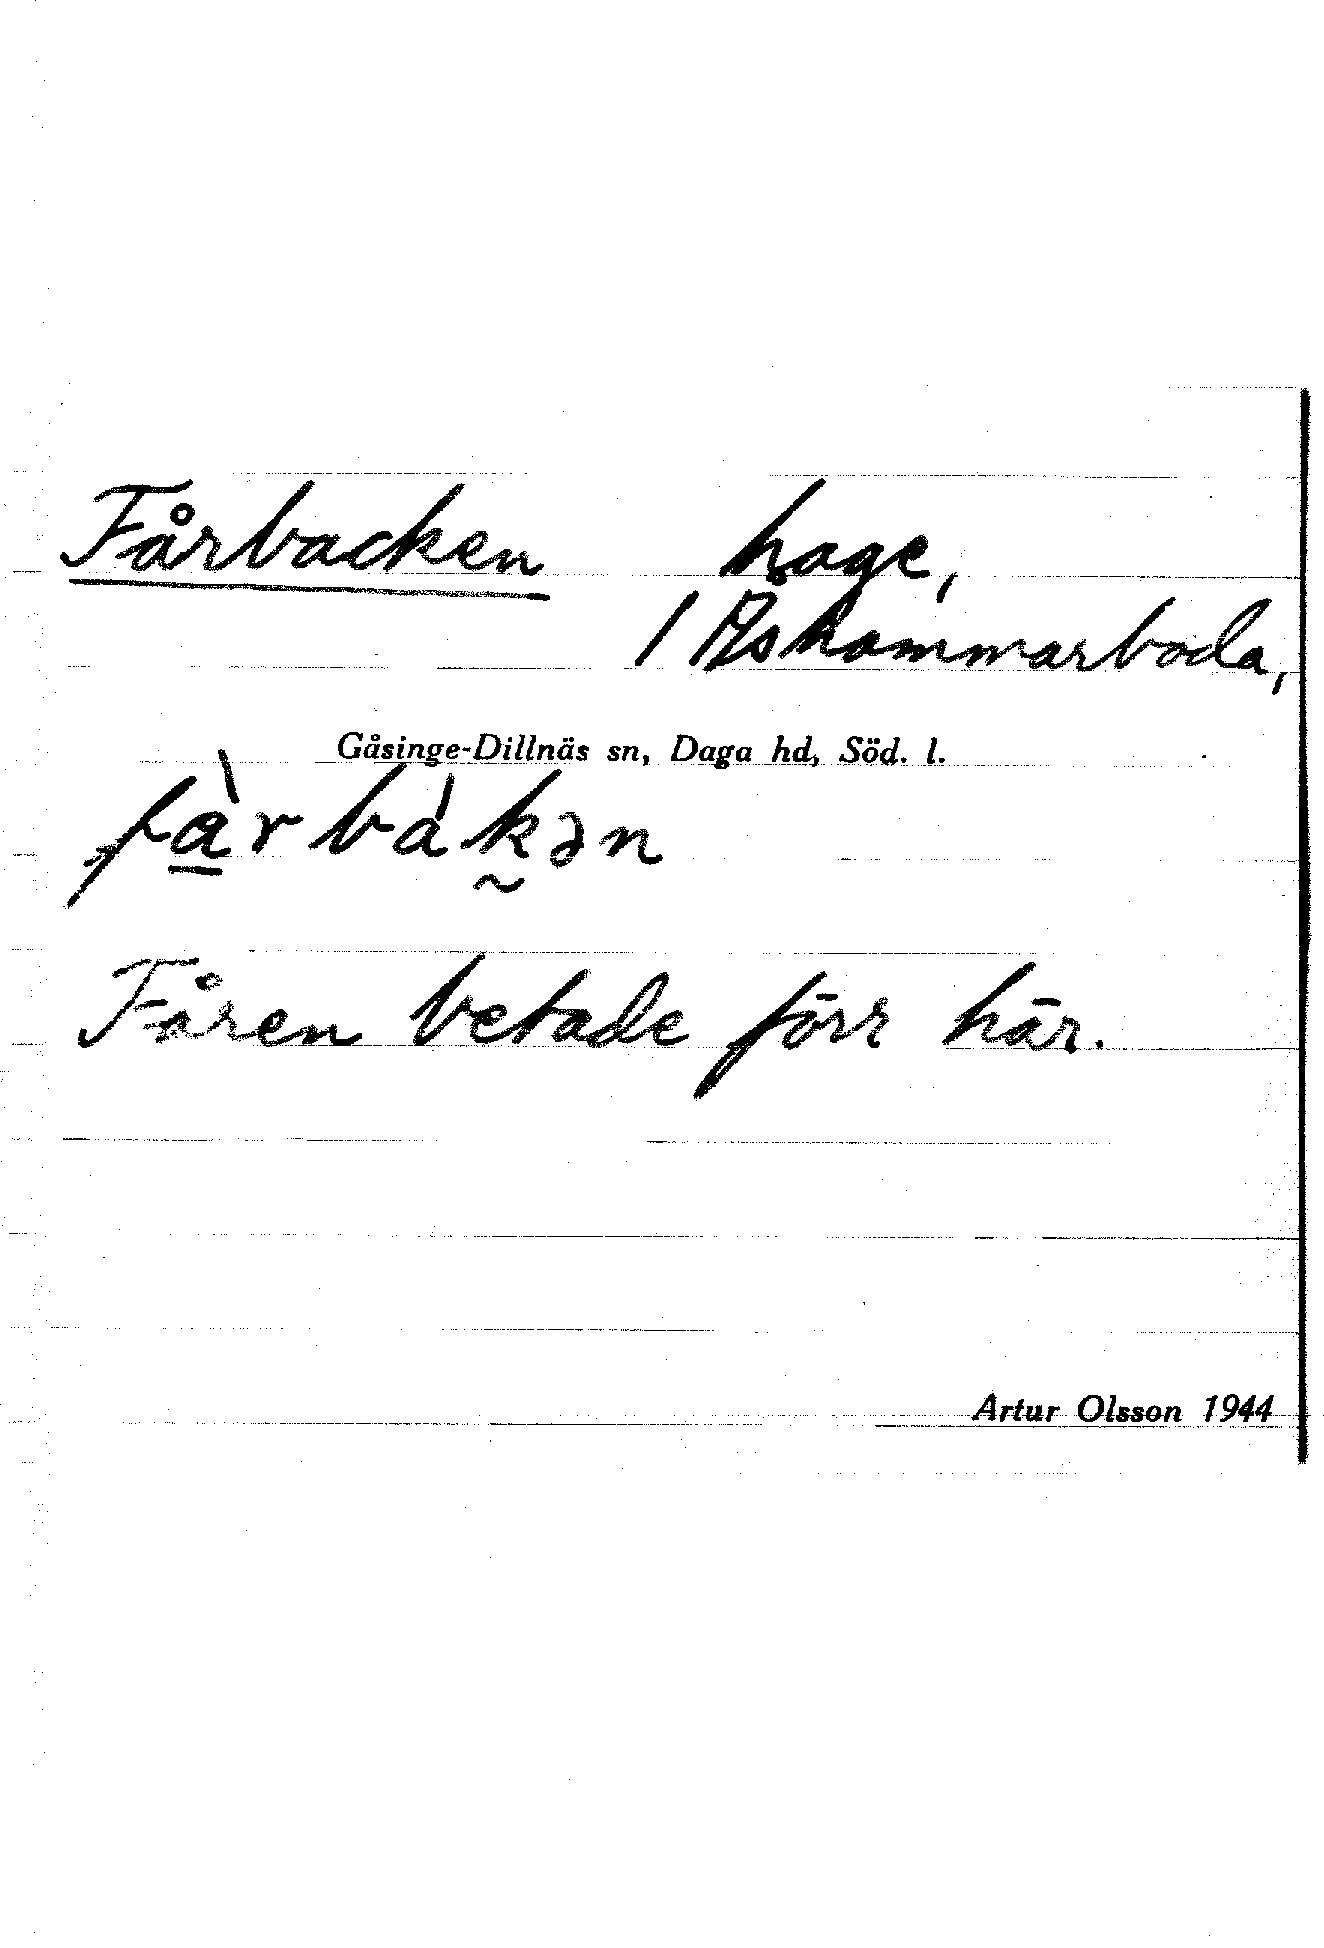 Fårbacken hage,
1 Åskammarboda,
Gåsinge-Dillnäs sn, Daga hd, Söd. l.
fà̱rbákən
Fåren betade förr här.
Artur Olsson 1944